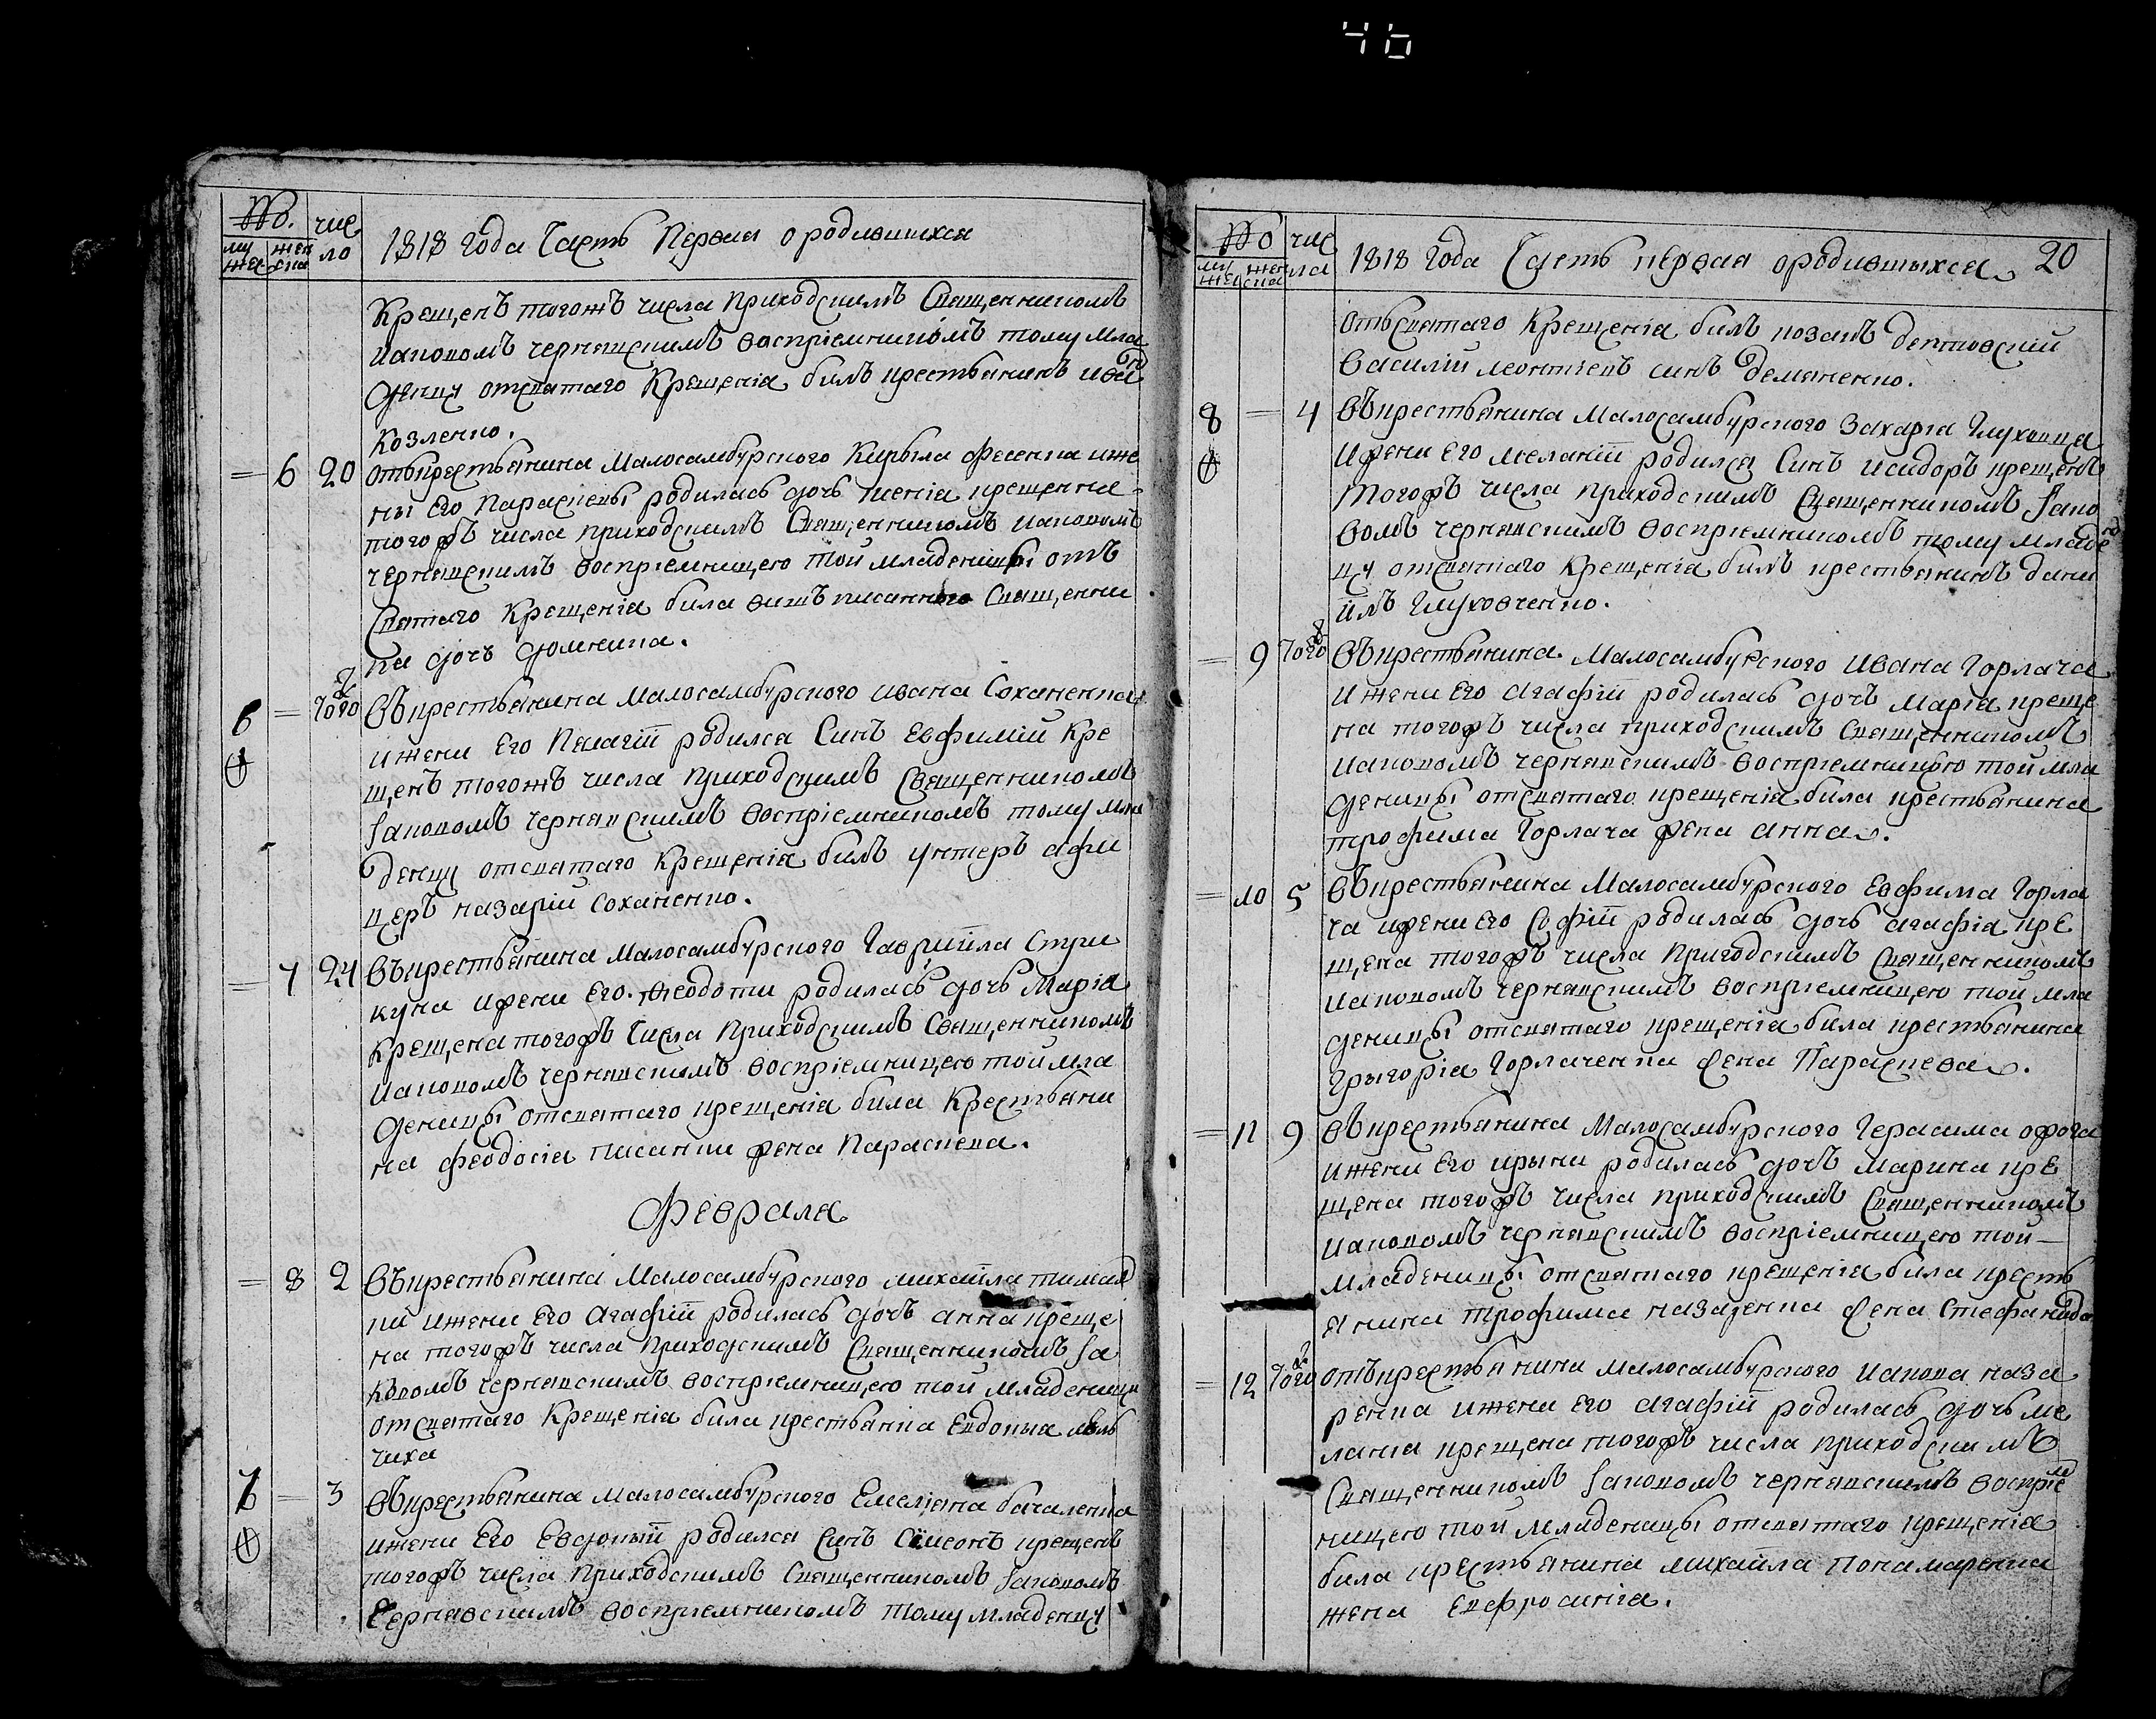 46
№. чис
му жен ло
жес ска
1818 года Часть Первая о родившихся
Крещенъ тогожъ числа приходскимъ Священникомъ
Иаковомъ чернявскимъ воспріемникомъ тому мла
денцу отсвятаго Крещенія билъ крестьянинъ иванъ
Козленко.
= 6 20 отькрестьянина Малосамбурского Кирыла фесенка иже
ны Его Параскевы родилась дочь ксенія крещенна
тогожъ числа приходскимъ Священникомъ Иаковомъ
чернявскимъ воспріемницею той младеницы отъ
Святаго Крещенія била вишъписанного Священни
ка дочь домникиа.
6 = Того& Въкрестьянина малосамбурского ивана Соханенка
ижени Его Пелагій родился Синъ Евфимій Кре
щенъ тогожъ числа приходскимъ Священникомъ
Іаковомъ чернявскимъ воспріемникомъ тому мла
денцу отсвятаго Крещенія билъ унтеръ афи
церъ назарій Соханенко.
= 7 24 Въкрестьянина малосамбурского Гаврійла Стри
куна ижени его. Феодоти родилась дочь Марія
Крещена тогожъ Числа приходскимъ Священникомъ
Иаковомъ чернявскимъ воспріемницею той мла
деницы отсвятаго крещенія била Крестьяни
на феодосія писанки жена Параскева.
Февраля
= 8 2 Въкрестьянина малосамбурского михайла
ки ижени Его Агафій родилась дочъ анна креще
на тогожъ числа приходскимъ Священникомъ Іа
ковомъ чернявскимъ воспріемницею той младеницы
отсвятаго Крещенія била крестьянка Евдокия
чиха
7 = 3 Въкрестьянина малосамбурского Емеліяна бакаленка
ижени Его Евдокый родился Синъ Симеонъ крещенъ
тогожъ числа приходскимъ Священникомъ Іаковомъ
Чернявскимъ воспріемникомъ тому младенцу
№ чис
му жен ла
жес ска
1818 года Часть первая ородившыхся 20
отьсвятаго Крещенія билъ козакъ дептовский
Василий леонтіевъ синъ демяненко.
8 = 4 Въкрестьянина Малосамбурского Захарія Глуховца
Ижени Его меланій родился Синъ Исидоръ крещенъ
тогожъ числа приходскимъ Священникомъ Іако
вомъ чернявскимъ воспріемникомъ тому младен
цу отсвятаго Крещенія билъ крестьянинъ дани
илъ Глуховченко.
= 9 Того& Въкрестьянина малосамбурского Ивана Горлача
Ижени Его агафій родилась дочъ марія креще
на тогожъ числа приходскимъ Священникомъ
иаковомъ чернявскимъ воспріемницою той мла
деницы отсвятаго крещенія била крестьянина
трофима Горлача жена анна.
= 10 5 Въкрестьянина Малосамбурского Евфима Горла
ча ижени Его Софій родилась дочь агафія кре
щена тогожъ числа Приходскимъ Священникомъ
иаковомъ чернявскимъ воспріемницею той мла
деницы отсвятаго крещенія била крестьянина
Грыгорія Горлаченка жена Параскева.
= 11 9 Въкрестьянина Малосамбурского Герасима
ижени Его ирыни родилась дочъ марина кре
щена тогожъ числа приходскимъ Священникомъ
иаковомъ чернявскимъ воспріемницею той
младеницы отсвятаго крещенія била кресть
янина трофима назаренка жена Стефанида
= 12 Того& отъкрестьянина малосамбурского иакова наза
ренка ижени Его агафій родилась дочь ме
ланія крещена тогожъ числа приходскимъ
Священникомъ Іаковомъ чернявскимъ воспріем
ницею той младеницы отсвятаго крещенія
била крестьянина михайла понамаренка
жена Евфросинія.